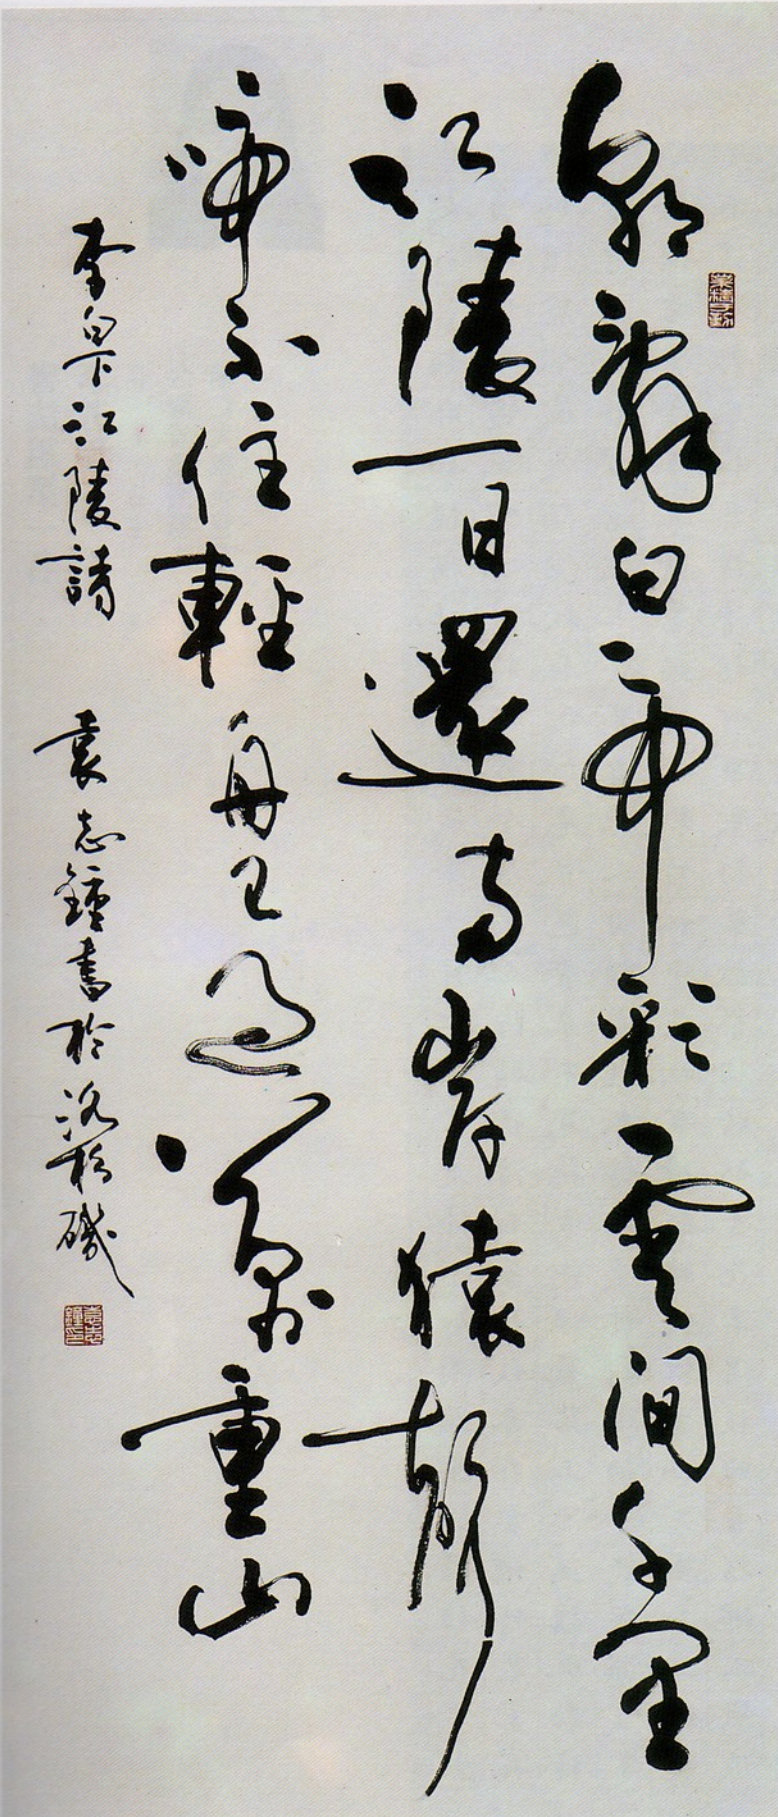 朝辭白帝彩雲間千里
江陵一日還兩岸猿聲
啼不住輕舟已過萬重山
李白下江陵詩 袁志鐘書於洛杉磯
袁志鐘印